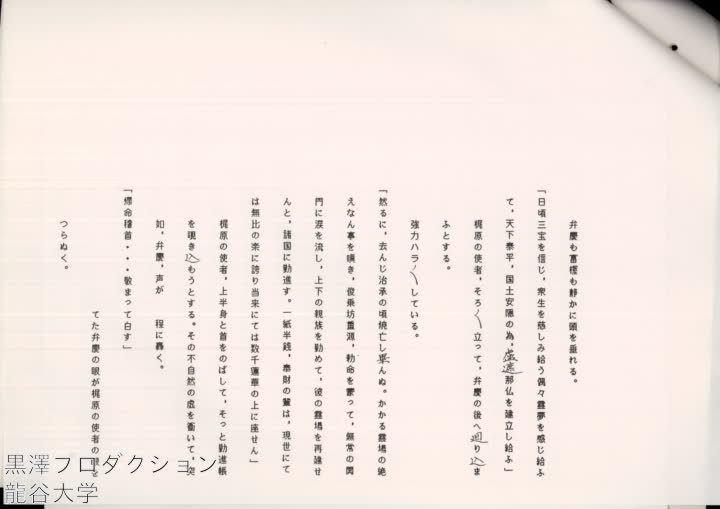 弁慶も富樫も静かに頭を垂れる。
「日頃三宝を信じ，衆生を慈しみ給う偶々霊夢を感じ給ふ
て，天下泰平，国土安隠の為，盧遮那仏を建立し給ふ」
梶原の使者，そろ〳〵立って，弁慶の後へ廻り込ま
ふとする。
強力ハラ〳〵している。
「然るに，去んじ治承の頃焼亡し果んぬ。かかる霊場の絶
えなん事を嘆き，俊乗坊重源，勅命を蒙って，無常の関
門に涙を流し，上下の親族を勧めて，彼の霊場を再建せ
んと，諸国に勧進す。一紙半銭，奉財の輩は，現世にて
は無比の楽に誇り当来にては数千蓮華の上に座せん」
梶原の使者，上半身と首をのばして，そっと勧進帳
を覗き込もうとする。その不自然の虚を衝いて，突
如，弁慶，声が　程に轟く。
「帰命稽首・・・敬まって白す」
てた弁慶の眼が梶原の使者の眼を
つらぬく。
黒澤プロダクション
龍谷大学